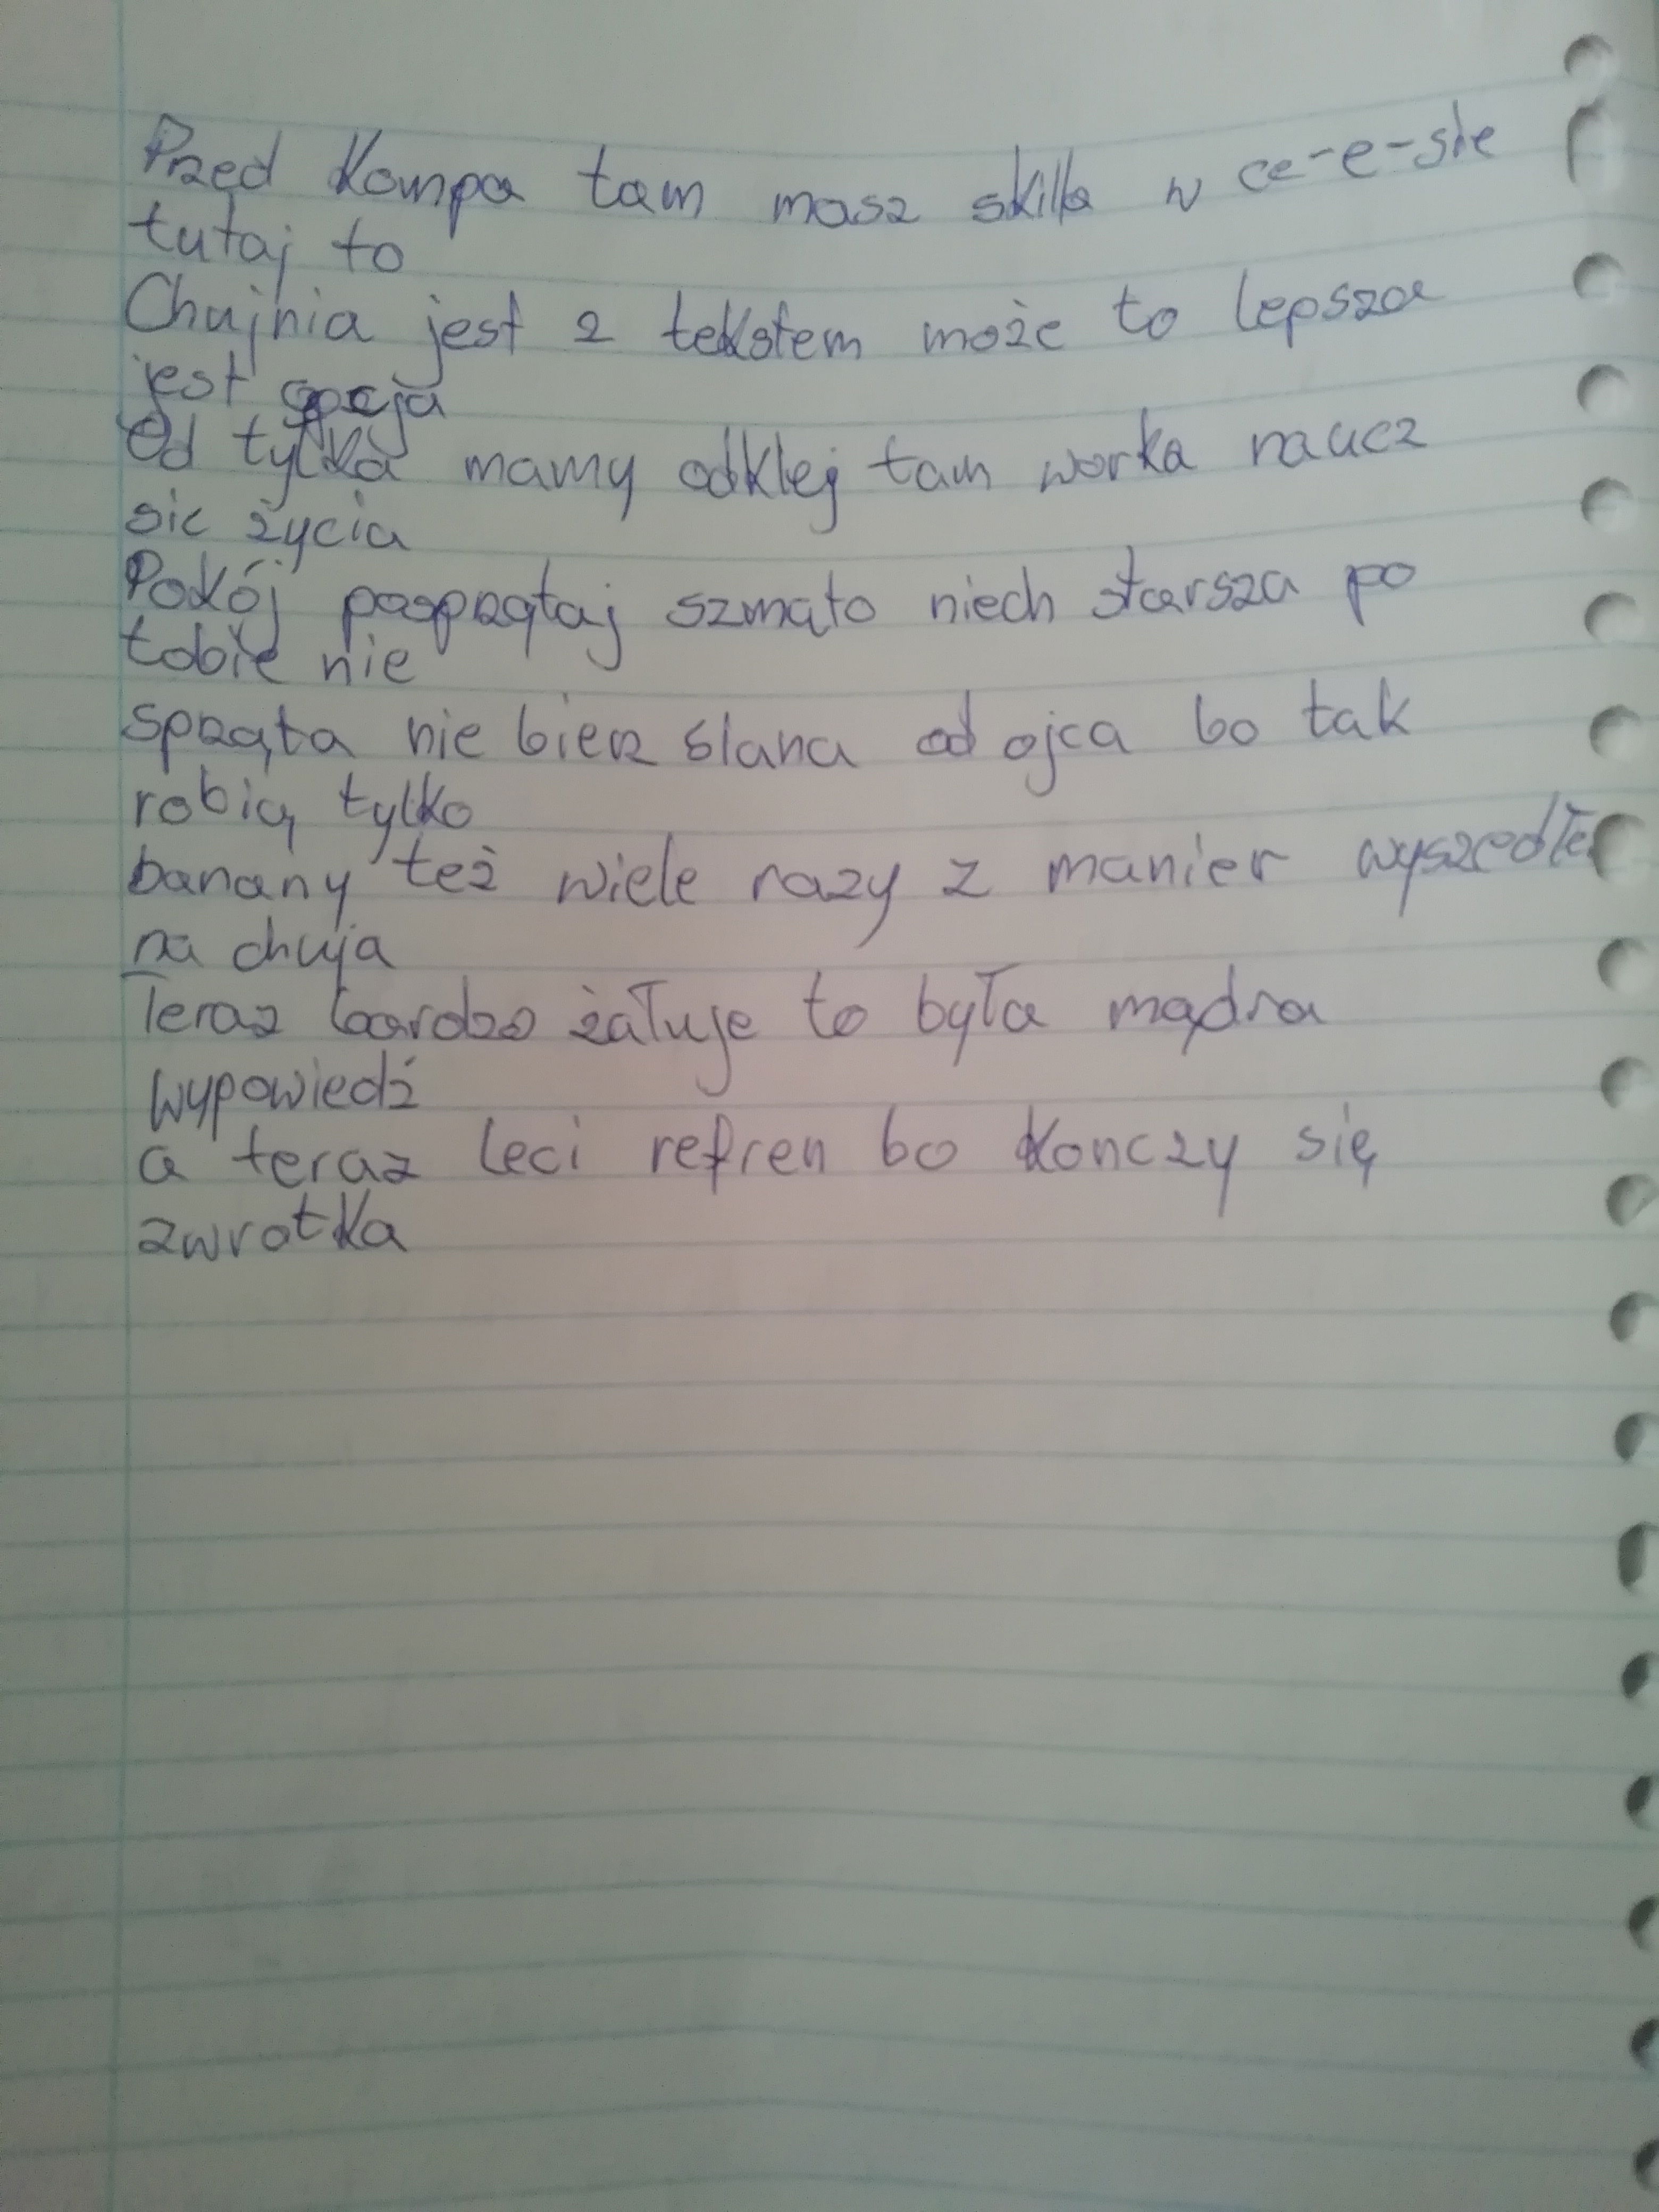 Przed Kompa tam masz skilla w ce-e-sie
tutaj to
Chujnia jest z tekstem może to lepsza
jest opcja
Od tyłka mamy odklej tam worka naucz
sie życia
Pokój posprzątaj szmato niech starsza po
tobie nie
sprząta nie bierz siana od ojca bo tak
robią tylko
banany też wiele razy z manier wyszedłe
na chuja
Teraz bardzo żałuje to była mądra
wypowiedź
a teraz leci refren bo konczy się
zwrotka